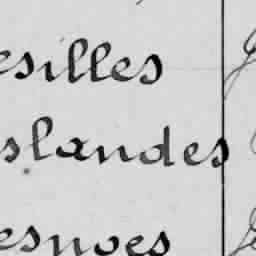 esilles
slandes
esnoes